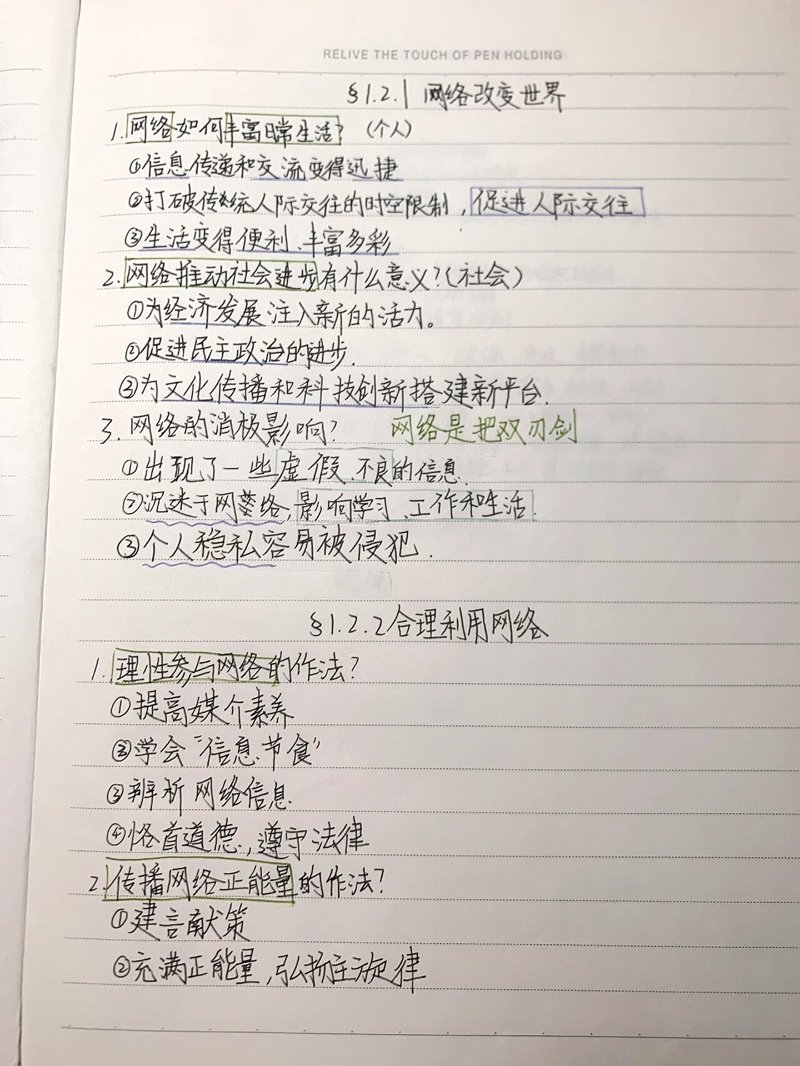 RELIVE THE TOUCH OF PEN HOLDING
§1.2.1 网络改变世界
1.网络如何丰富日常生活?(个人)
①信息传递和交流变得迅捷
②打破传统人际交往的时空限制,促进人际交往
③生活变得便利、丰富多彩
2.网络推动社会进步有什么意义?(社会)
①为经济发展注入新的活力。
②促进民主政治的进步.
③为文化传播和科技创新搭建新平台.
3.网络的消极影响? 网络是把双刃剑
①出现了一些虚假、不良的信息.
②沉迷于网络,影响学习、工作和生活.
③个人稳私容易被侵犯.
§1.2.2合理利用网络
1.理性参与网络的作法?
①提高媒介素养
②学会“信息节食”
③辨析网络信息
④恪首道德,遵守法律
2.传播网络正能量的作法?
①建言献策
②充满正能量,弘扬主旋律